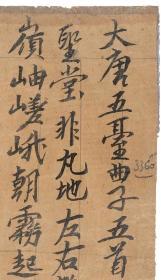 大唐五臺曲子五首
聖堂非凡地左右
嶺岫嵯峨朝霧起
3360